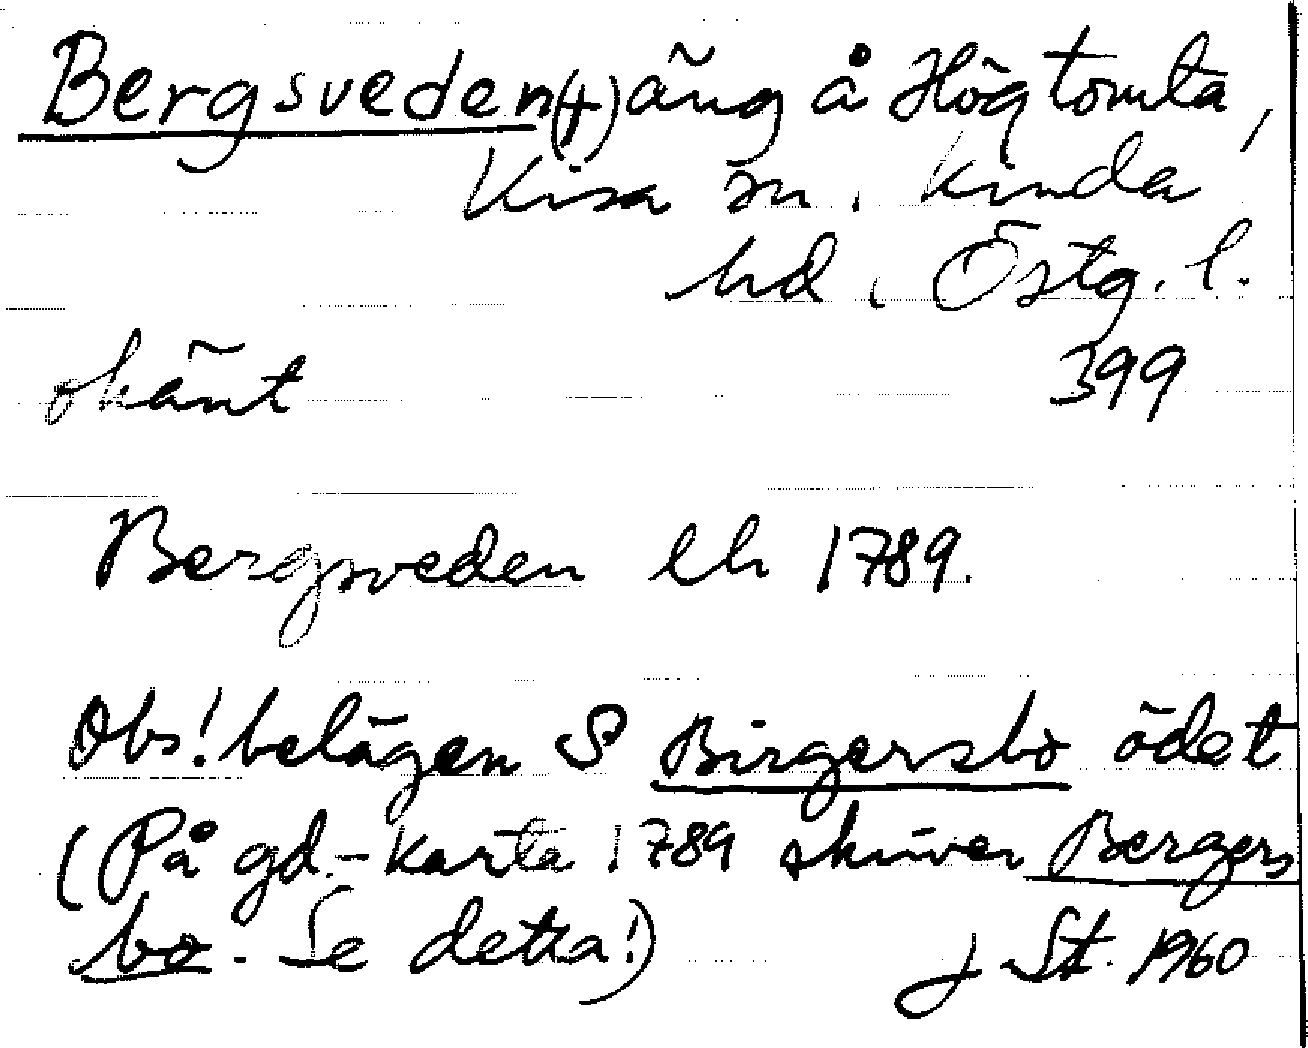 Bergsveden (+) äng å Högtomta,
Kisa sn. Kinda
hd. Östg. l.
okänt 399
Bergsveden lh 1789.
Obs! belägen S Birgersbo ödet
(På gd.-karta 1789 skriver Bergers
bo. Se detta!) J St. 1960